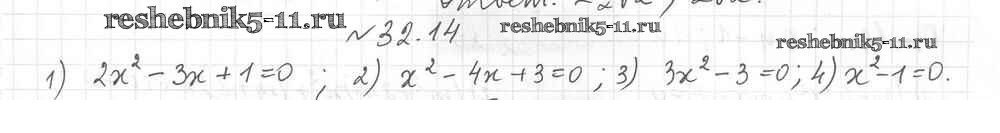 reshebnik5-11.ru
reshebnik5-11.ru
№32.14
reshebnik5-11.ru
1) 2x² - 3x + 1 = 0 ; 2) x² - 4x + 3 = 0 ; 3) 3x² - 3 = 0; 4) x² - 1 = 0.